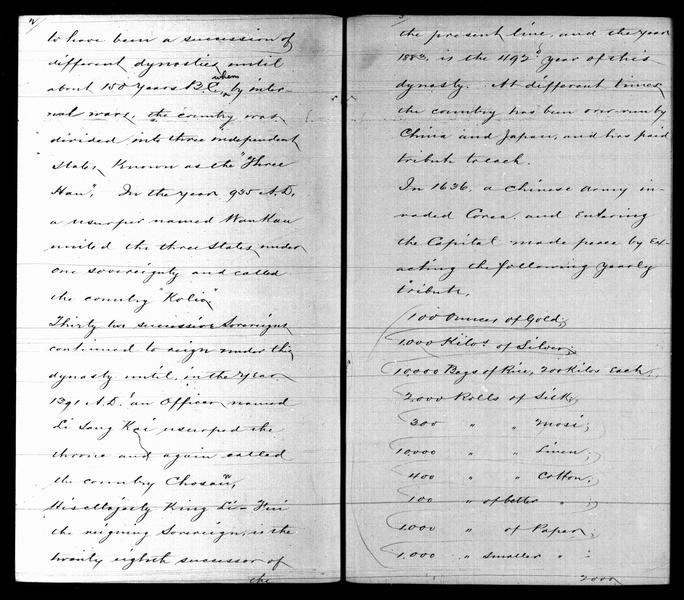 2/
to have been a succession of
different dynasties until
about 150 years B.C., when
by inter-
nal wars, the country was
divided into three independent
States, known as the "Three
Han". In the year 935 A.D.
a usurper named Wan Kau
united the three States, under
one sovereignty and called
the country "Kolio"
Thirty two successive Sovereigns
continued to reign under this
dynasty until, in the year
1391 A.D. an Officer named
Li Sang Kei usurped the
throne and again called
the country Chosan",
His Majesty King Li-Hui
the reigning Sovereign, is the
twenty eighth successor of
the
3
the present line, and the year
1883, is the 492° year of this
dynasty. At different times
the country has been over-run by
China and Japan, and has paid
tribute to each.
In 1636, a Chinese Army in-
vaded Corea, and entering
the Capital made peace by ex-
acting the following yearly
tribute,
100 Ounces of Gold;
1.000 Kilos of Silver;
10,000 Bags of Rice, 200 Kilos each;
2000 Rolls of Silk;
300 " " Mosi;
10,000 " " Linen;
400 " " Cotton;
100 " of better " ;
1,000 " of Paper;
1.000 " smaller " ;
2000